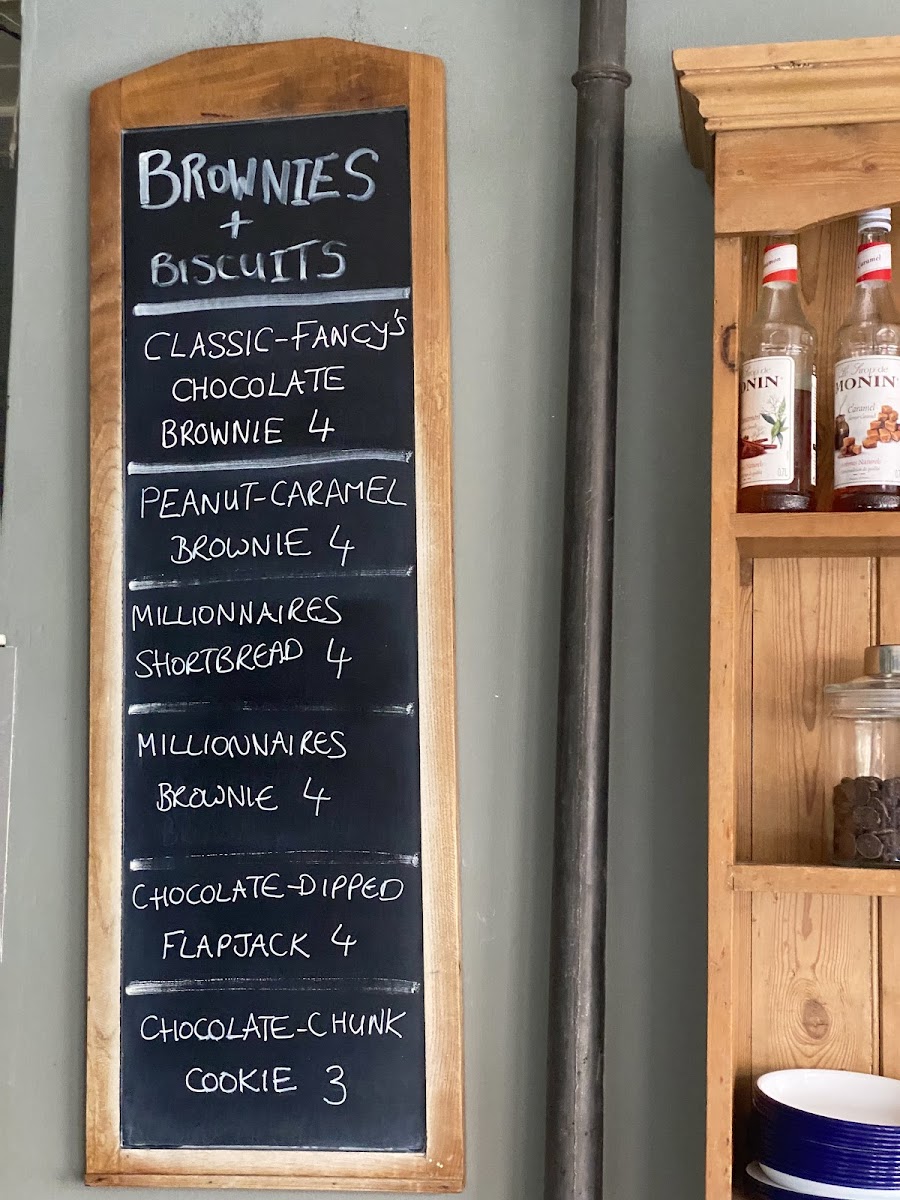 BROWNIES
+
BISCUITS
CLASSIC-FANCY'S
CHOCOLATE
BROWNIE 4
PEANUT-CARAMEL
BROWNIE 4
MILLIONNAIRES
SHORTBREAD 4
MILLIONNAIRES
BROWNIE 4
CHOCOLATE-DIPPED
FLAPJACK 4
CHOCOLATE-CHUNK
COOKIE 3
Caramel
Le Sirop de
MONIN
Caramel
ONIN
0,7L